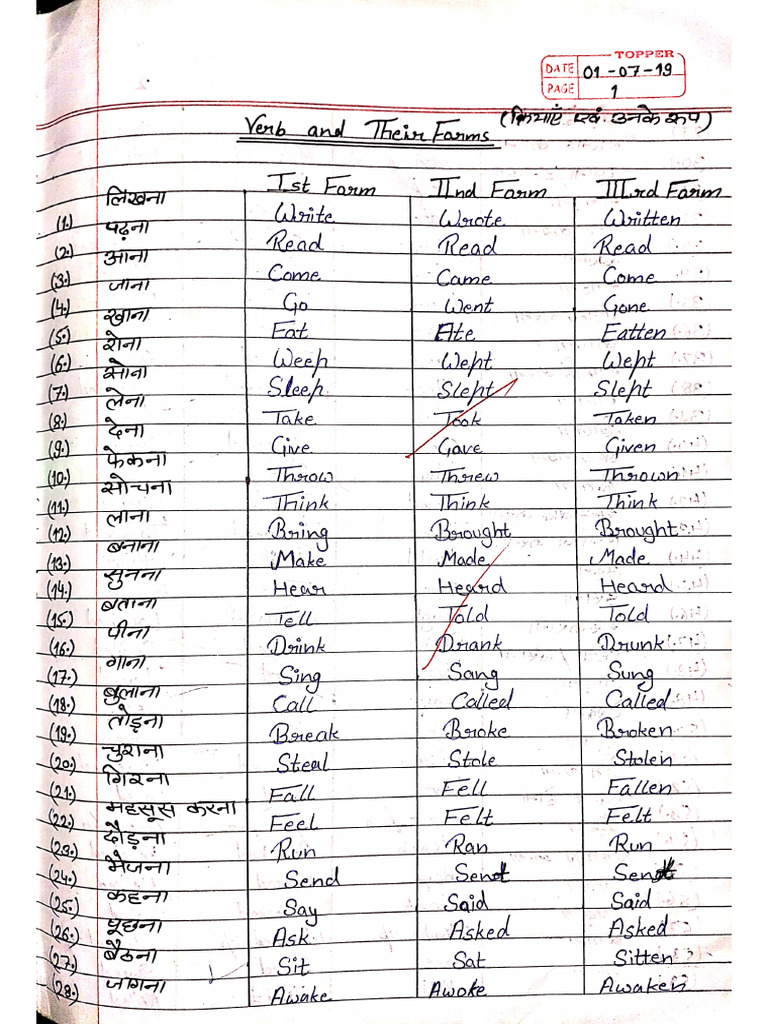 TOPPER
DATE 01-07-19
PAGE 1
Verb and Their Farms (क्रियाएँ एवं उनके रूप)
Ist Farm IInd Farm IIIrd Farm
(1.) लिखना Write Wrote Written
(2.) पढ़ना Read Read Read
(3.) आना Come Came Come
(4.) जाना Go Went Gone
(5.) खाना Eat Ate Eatten
(6.) रोना Weep Wept Wept
(7.) सोना Sleep Slept Slept
(8.) लेना Take Took Taken
(9.) देना Give Gave Given
(10.) फेकना Throw Threw Thrown
(11.) सोचना Think Think Think
(12.) लाना Bring Brought Brought
(13.) बनाना Make Made Made
(14.) सुनना Hear Heard Heard
(15.) बताना Tell Told Told
(16.) पीना Drink Drank Drunk
(17.) गाना Sing Sang Sung
(18.) बुलाना Call Called Called
(19.) तोड़ना Break Broke Broken
(20.) चुराना Steal Stole Stolen
(21.) गिरना Fall Fell Fallen
(22.) महसूस करना Feel Felt Felt
(23.) दौड़ना Run Ran Run
(24.) भेजना Send Sent Sent
(25.) कहना Say Said Said
(26.) पूछना Ask Asked Asked
(27.) बैठना Sit Sat Sitten
(28.) जागना Awake Awoke Awaken